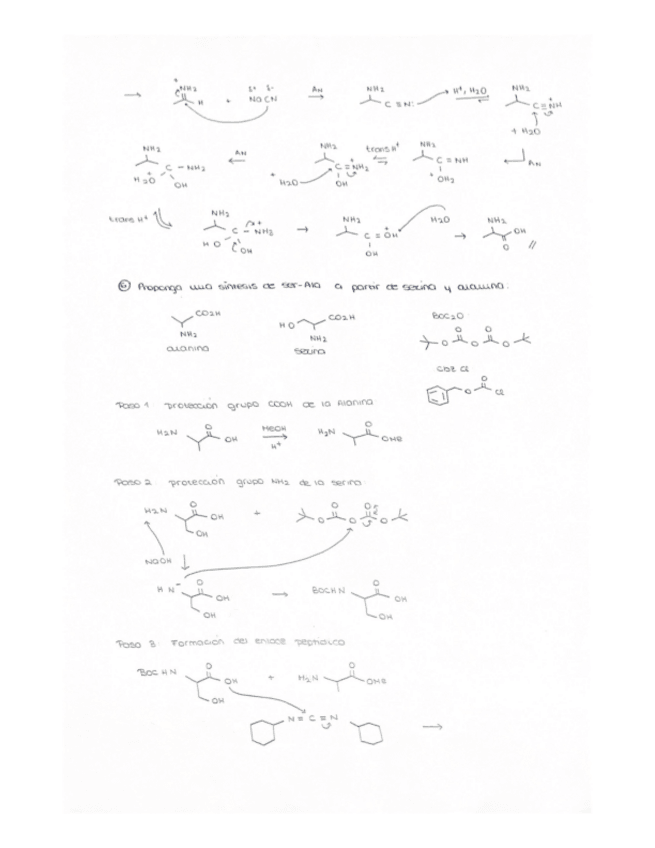 NH2 H + NaCN AN NH2 C≡N: H+, H2O NH2 C≡NH
+ H2O
NH2 C - NH2 H2O OH AN + H2O NH2 C=NH2 OH trans H+ NH2 C=NH OH2 AN
trans H+ NH2 C - NH3 HO OH NH2 C=OH OH H2O NH2 OH O //
⑥ Proponga una síntesis de ser-Ala a partir de serina y alanina.
CO2H NH2 HO CO2H NH2 BOC2O
alanina serina O O O O O
Cbz Cl
O O Cl
Paso 1 protección grupo COOH de la Alanina
H2N O OH MeOH H+ H2N O OMe
Paso 2 protección grupo NH2 de la serina
H2N O OH OH + O O O O O
NaOH
HN- O OH OH BOCHN O OH OH
Paso 3 Formación del enlace peptídico
BOC HN O OH OH + H2N O OMe
N=C=N